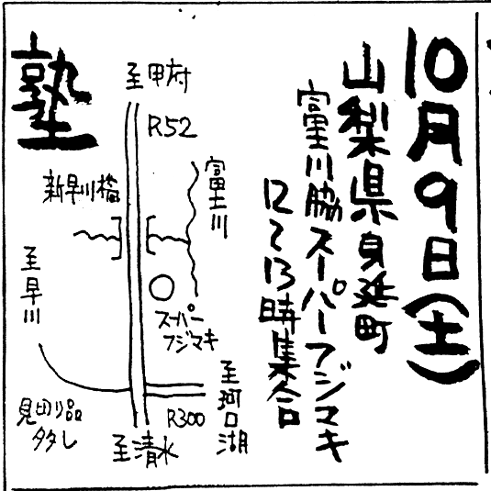 10月9日(土)
山梨県身延町
富士川脇スーパーフジマキ
12〜13時集合
塾
至甲府
R52
富士川
新早川橋
至早川
スーパー
フジマキ
至河口湖
R300
見切り品
多多し
至清水